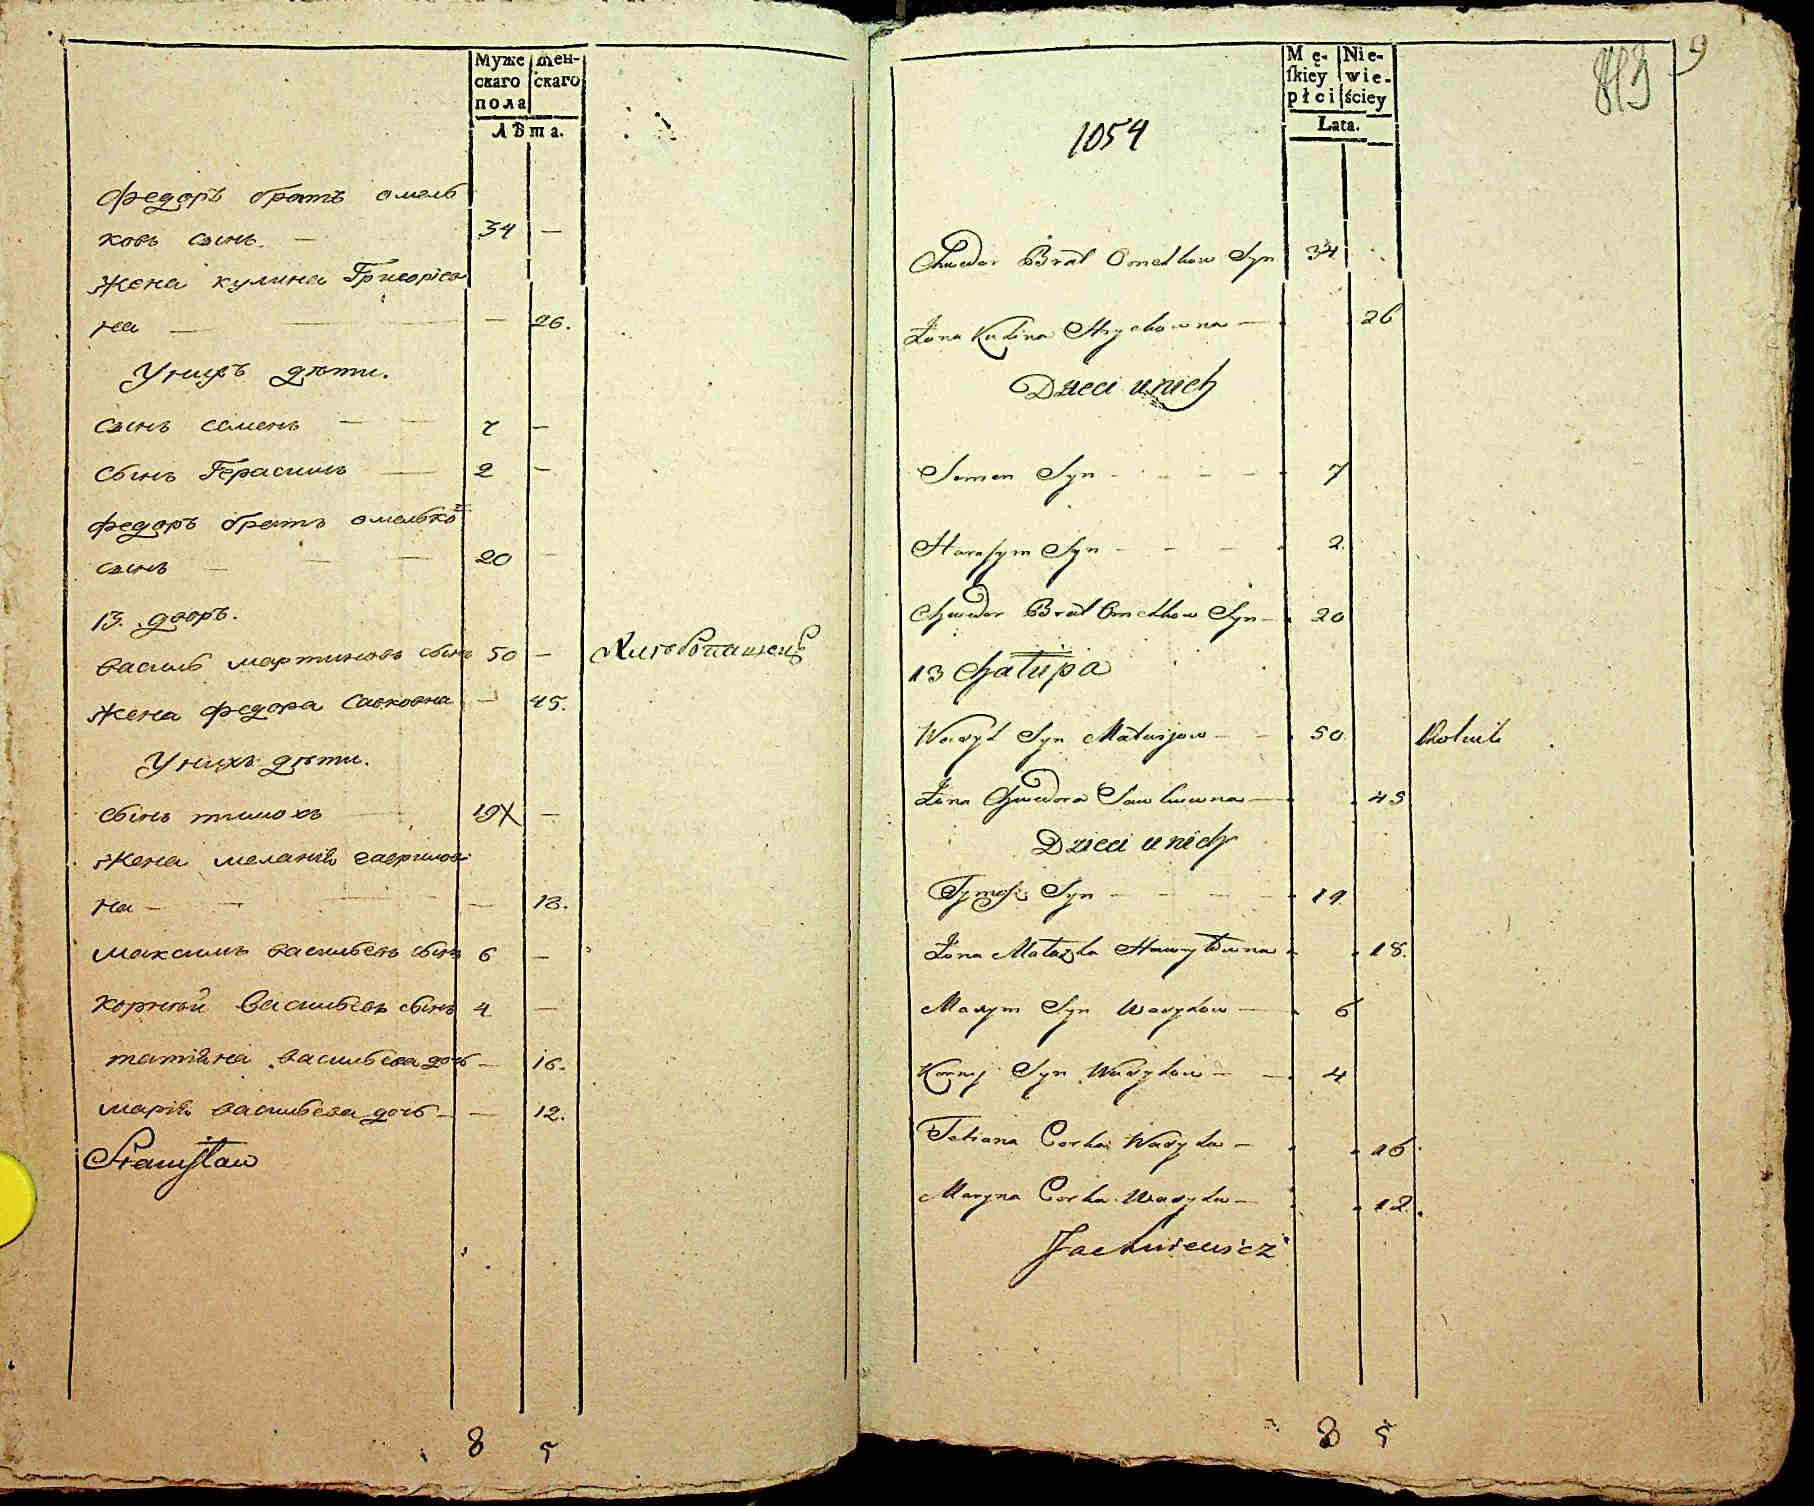 Муже
скаго
пола
Жен-
скаго
Лѣта.
федоръ братъ омель
ковъ сынъ — 34 —
жена кулина Григорїев
на — — 26.
У нихъ дѣти.
сынъ семенъ — 7 —
сынъ Герасимъ — 2 —
федоръ братъ омелько
сынъ — 20 —
13. дворъ.
василь мартиновъ сынъ 50 — Хлѣбопашецъ
жена федора Савковна — 45.
У нихъ дѣти.
сынъ тимохъ 19 —
жена меланія гаврилов
на — — 18.
максимъ васильевъ сынъ 6 —
корнѣй васильевъ сынъ 4 —
татіяна васильева дочь — 16.
марія васильева дочь — — 12.
Stanisław
8 5
9
813
Mę-
ſkiey
płci
Nie-
wie-
ściey
Lata.
1054
Chwedor Brat Omelkow Syn 34
Żona Kulina Hrychowna — 26
Dzieci u nich
Semen Syn - - - - 7
Harasym Syn - - - 2.
Chwedor Brat Omelkow Syn — 20
13 Chałupa
Wasyl Syn Matwijow — — 50. Rolnik
Żona Chwedora Sawkowna — 45
Dzieci u nich
Tymosz Syn - - - - 19.
Żona Małazka Hawryłowna 18.
Maxym Syn Wasylow — 6
Korney Syn Wasylow — — 4
Tatiana Corka Wasyla — 16.
Maryna Corka Wasyla — 12.
Jachniewicz
8 5